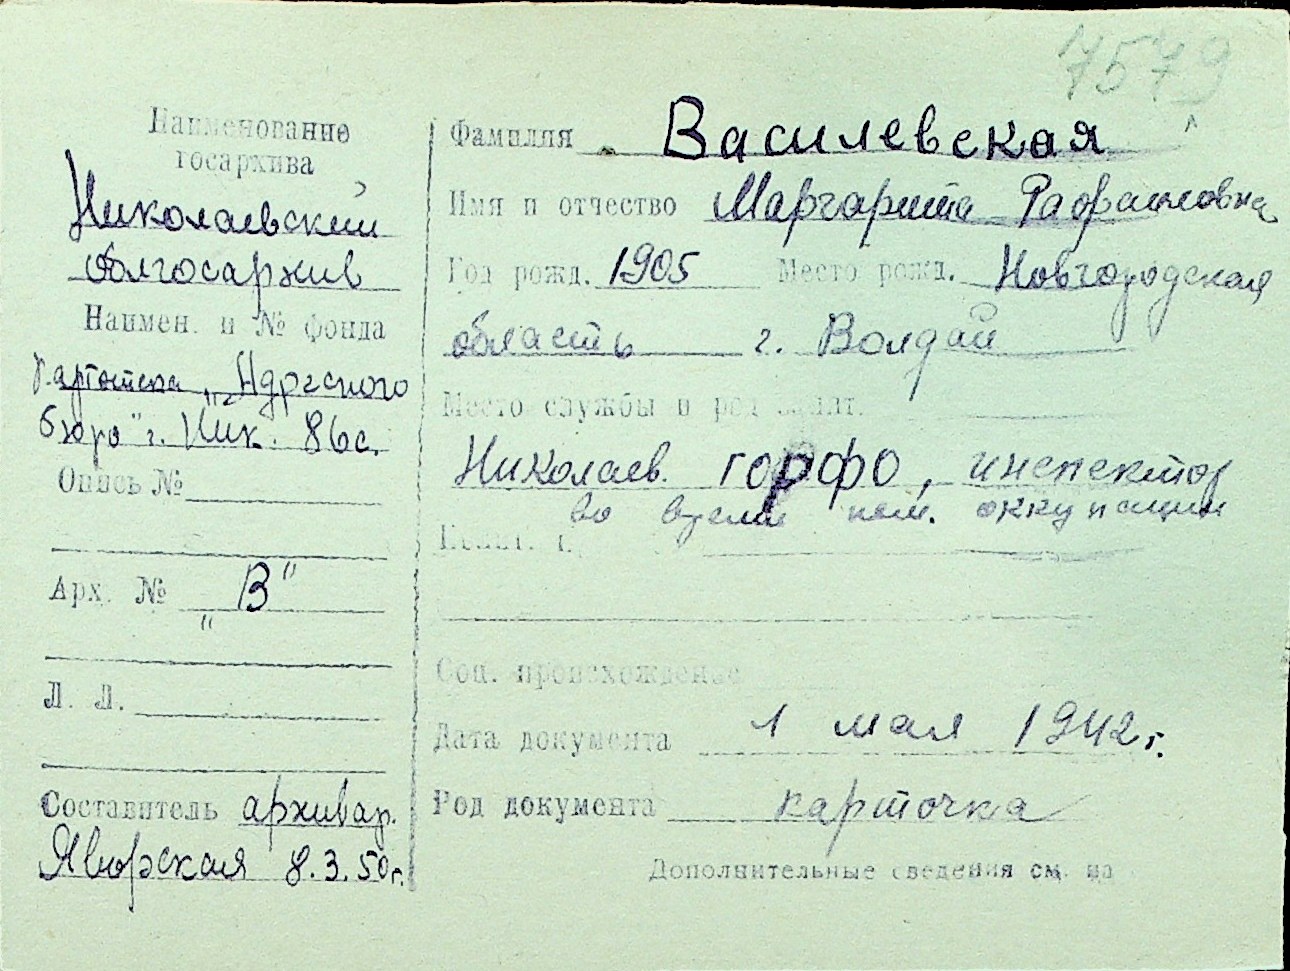 7579
Наименование
госархива
Николаевский
облгосархив
Наимен. и № фонда
Картотека „Адресного
бюро" г. Ник. 86с.
Опись №
Арх. № „В"
Л. Л.
Составитель архивар.
Яворская 8.3.50г.
Фамилия Василевская
Имя и отчество Маргарита Рафаиловна
Год рожд. 1905 Место рожд. Новгородская
область г. Волдай
Место службы и род занят.
Николаев. горфо, инспектор
во время нем. оккупации
Соц. происхождение
Дата документа 1 мая 1942г.
Род документа карточка
Дополнительные сведения см. на